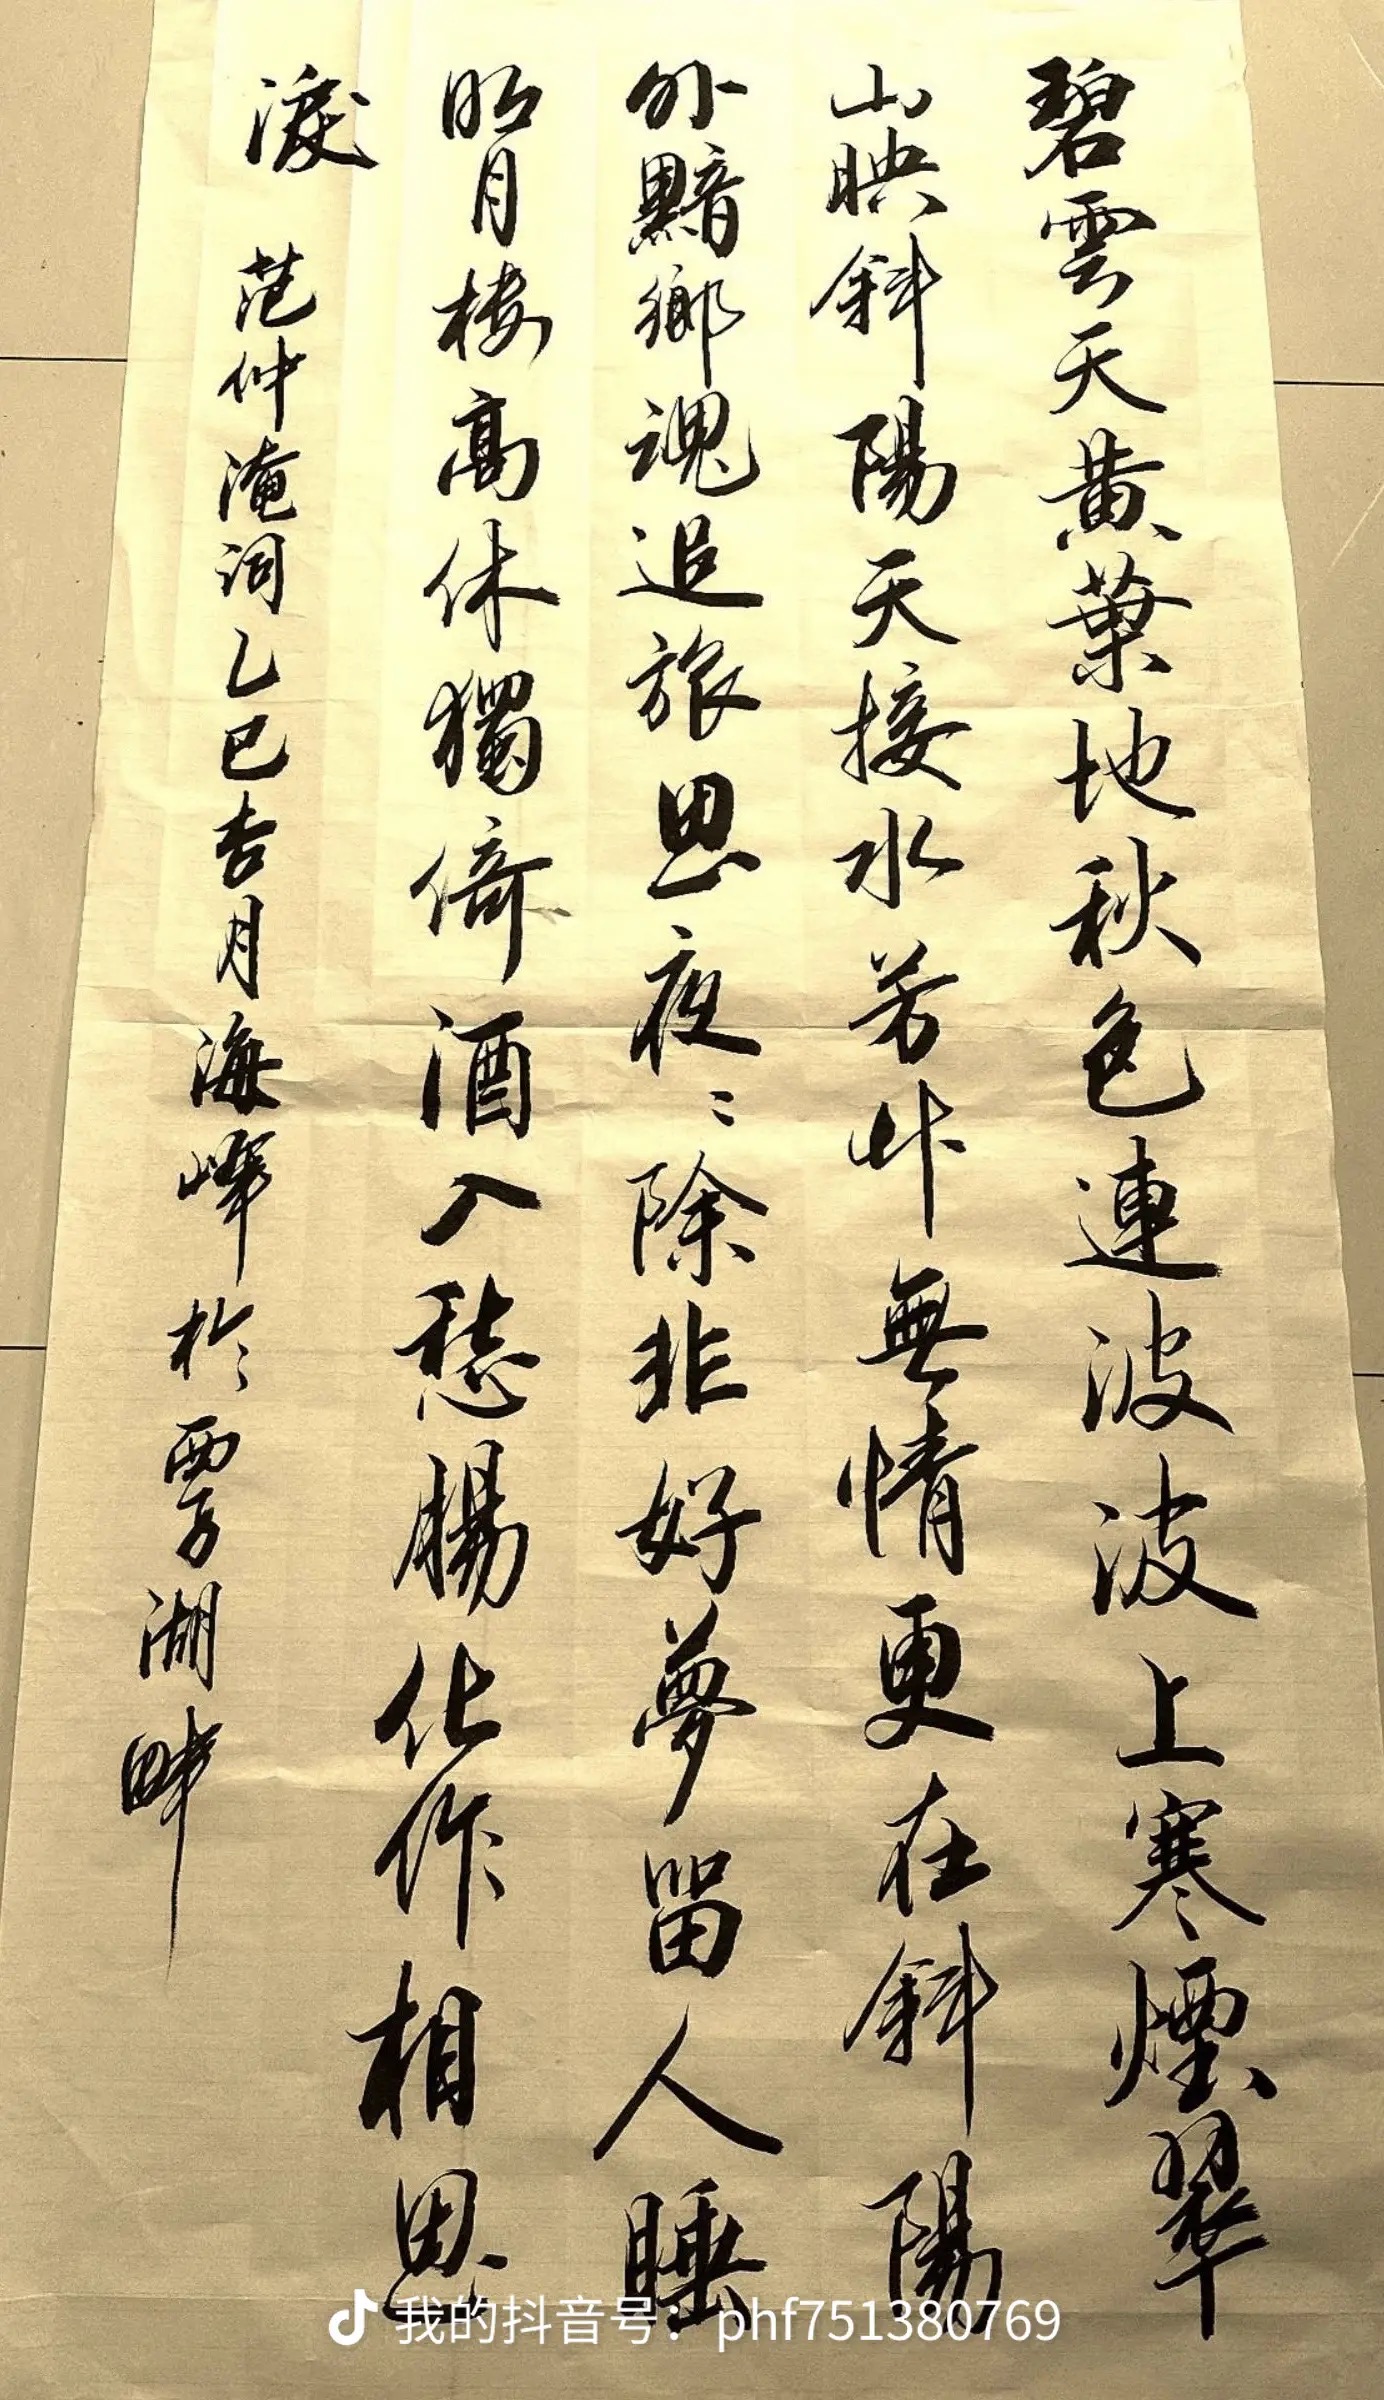 碧雲天黄葉地秋色連波波上寒煙翠
山映斜陽天接水芳艸無情更在斜陽
外黯鄉魂追旅思夜〻除非好夢留人睡
明月樓高休獨倚酒入愁腸化作相思
淚
范仲淹詞乙巳杏月海峰於賈湖畔
我的抖音号：phf751380769